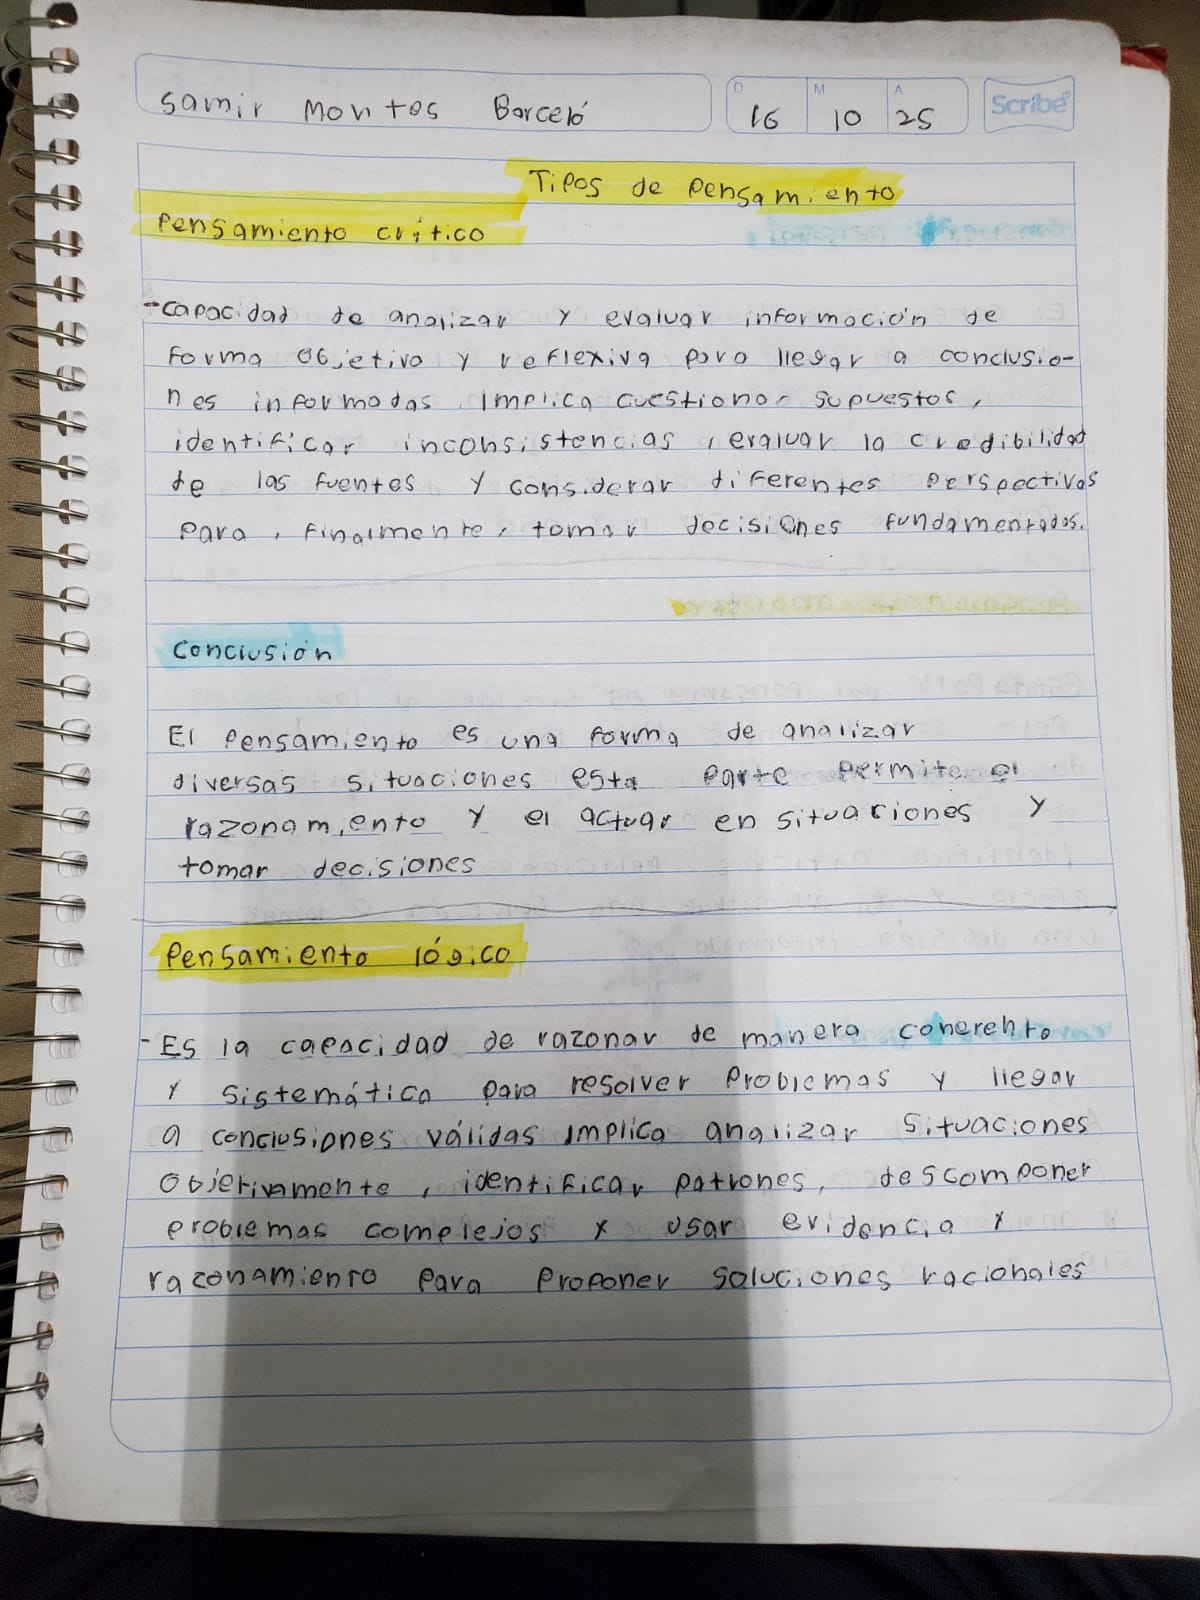 Samir Montes Barceló
D M A
16 10 25
Scribe
Tipos de pensamiento
Pensamiento crítico
-Capacidad de analizar y evaluar información de
forma objetiva y reflexiva para llegar a conclusio-
nes informadas. Implica cuestionar supuestos,
identificar inconsistencias, evaluar la credibilidad
de las fuentes y considerar diferentes perspectivas
para, finalmente, tomar decisiones fundamentados.
Conclusión
El pensamiento es una forma de analizar
diversas situaciones esta parte permite el
razonamiento y el actuar en situaciones y
tomar decisiones
Pensamiento lógico
- Es la capacidad de razonar de manera coherente
y sistemática para resolver problemas y llegar
a conclusiones válidas implica analizar situaciones
objetivamente, identificar patrones, descomponer
problemas complejos y usar evidencia y
razonamiento para proponer soluciones racionales